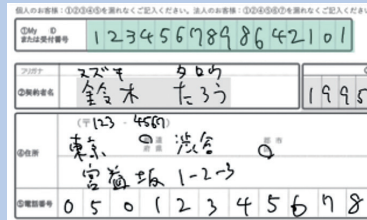 個人のお客様：①②③④⑤を漏れなくご記入ください。法人のお客様：①②③④⑤⑥⑦を漏れなくご記入ください。
①My ID または受付番号 123456789864210 1
フリガナ スズキ タロウ
②契約者名 鈴木 たろう 1995
(〒123-4567)
④住所 東京 都道府県 渋谷 市区
宮益坂 1-2-3
⑤電話番号 05012345678